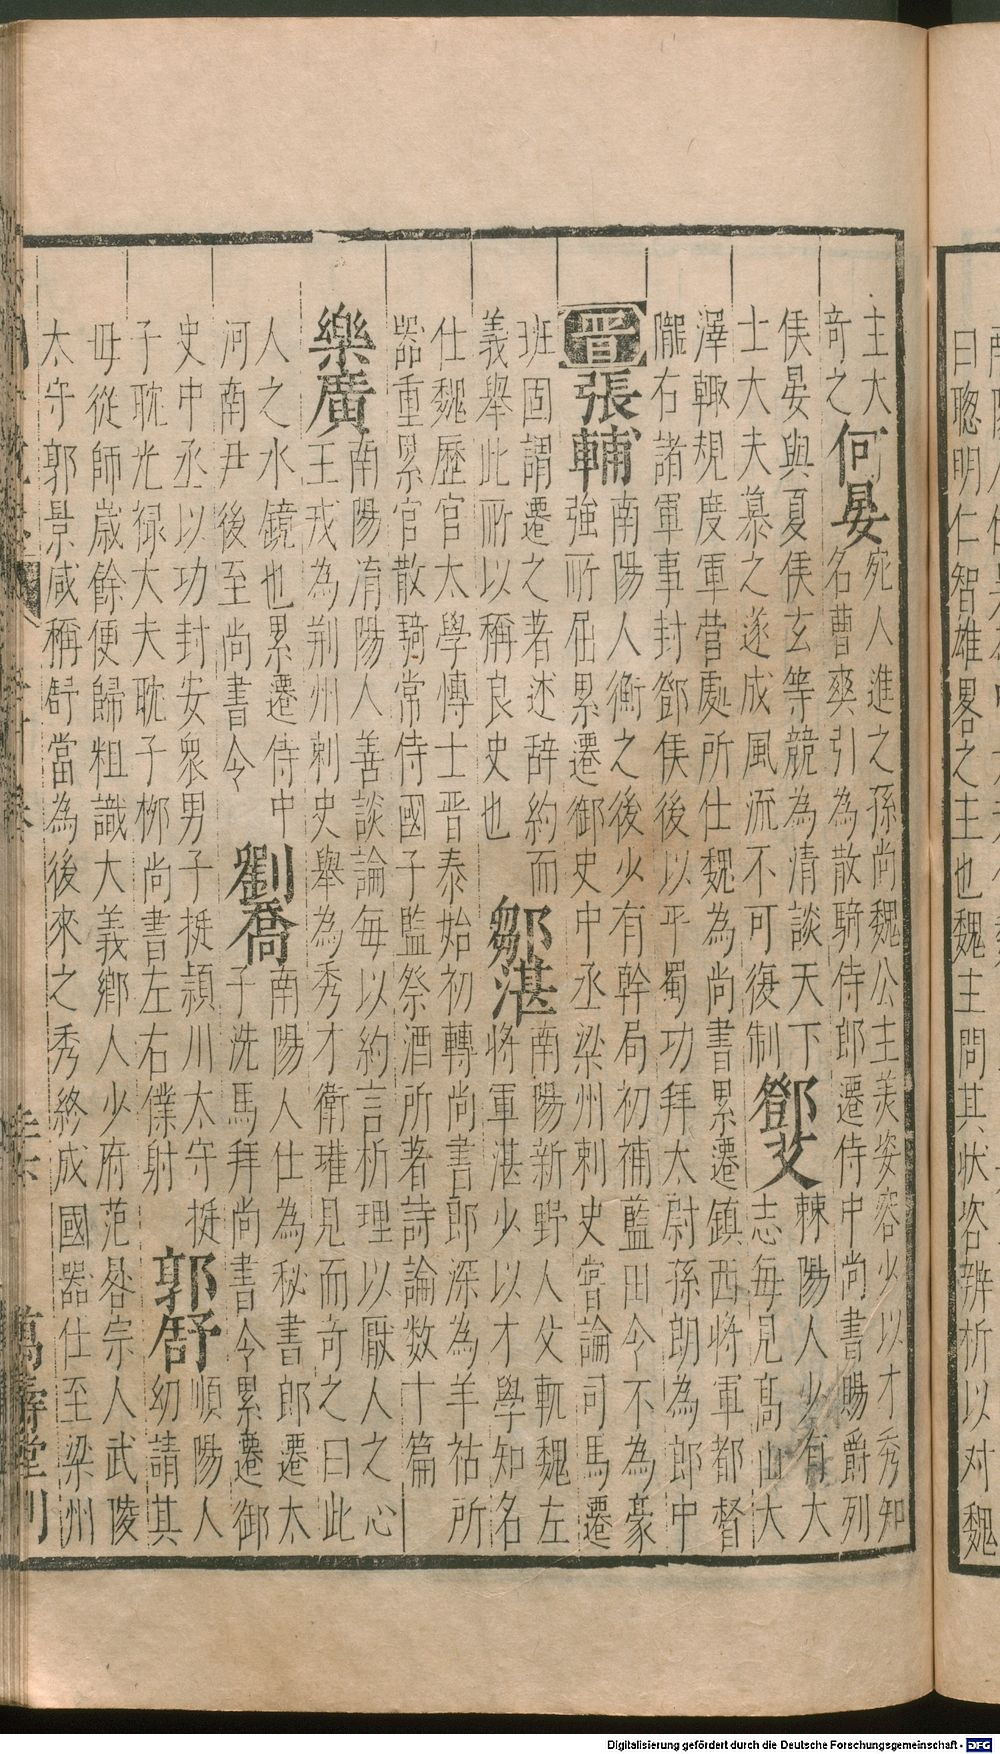 曰聰明仁智雄畧之主也魏主問其狀咨辨析以对魏
主大
奇之
何晏
宛人進之孫尚魏公主美姿容少以才秀知
名曹爽引為散騎侍郎遷侍中尚書賜爵列
侯晏與夏侯玄等競為清談天下
士大夫慕之遂成風流不可復制
鄧艾
棘陽人少有大
志每見高山大
澤輒規度軍营處所仕魏為尚書累遷鎮西將軍都督
隴右諸軍事封鄧侯後以平蜀功拜太尉孫朗為郎中
晋
張輔
南陽人衡之後少有幹局初補藍田令不為豪
強所屈累遷御史中丞梁州刺史嘗論司馬遷
班固謂遷之著述辞約而
義舉此所以稱良史也
鄒湛
南陽新野人父軌魏左
將軍湛少以才學知名
仕魏歷官太學愽士晋泰始初轉尚書郎深為羊祜所
器重累官散騎常侍國子監祭酒所著詩論数十篇
樂廣
南陽淯陽人善談論每以約言析理以厭人之心
王戎為荆州刺史舉為秀才衛瓘見而奇之曰此
人之水鏡也累遷侍中
河南尹後至尚書令
劉喬
南陽人仕為秘書郎遷太
子洗馬拜尚書令累遷御
史中丞以功封安衆男子挺頴川太守 挺
子耽光禄大夫耽子栁尚書左右僕射
郭舒
順陽人
幼請其
毋從師歳餘便歸粗識大義鄉人少府范晷宗人武陵
太守郭景咸稱舒當為後來之秀終成國器仕至梁州
萬壽堂刊
Digitalisierung gefördert durch die Deutsche Forschungsgemeinschaft - DFG